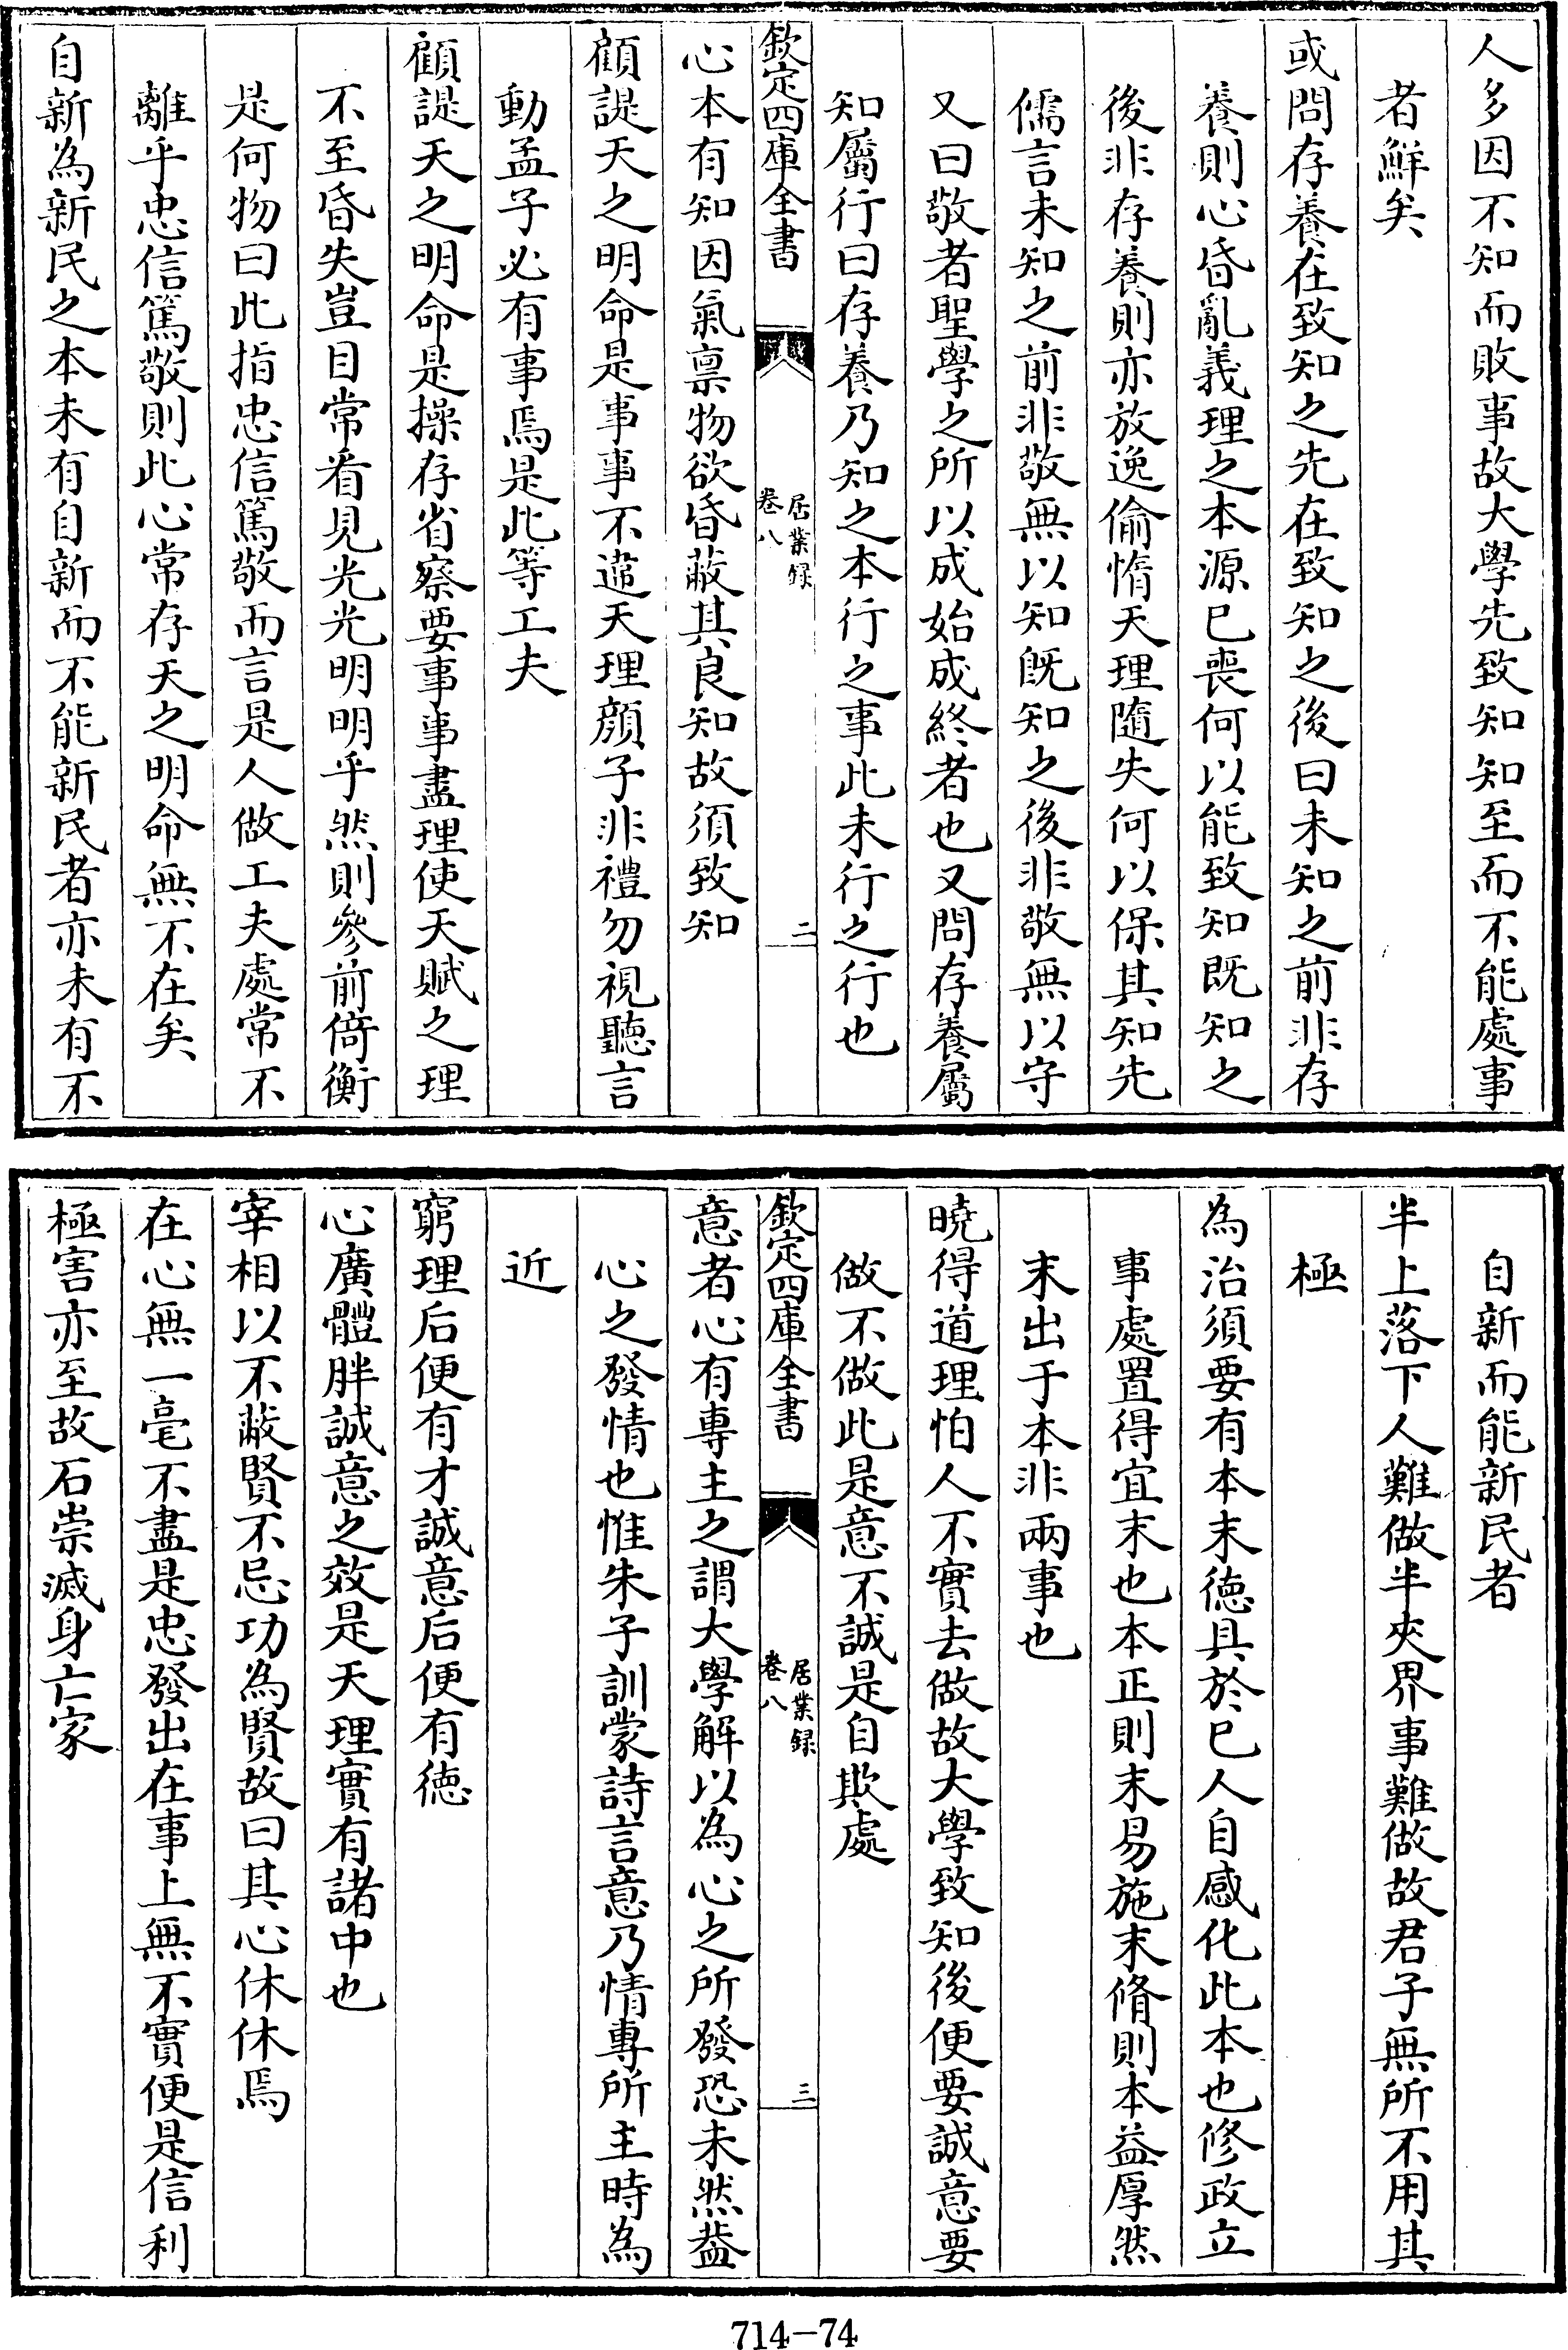 人多因不知而敗事故大學先致知知至而不能處事
者鮮矣
或問存養在致知之先在致知之後曰未知之前非存
養則心昏亂義理之本源已喪何以能致知既知之
後非存養則亦放逸偷惰天理隨失何以保其知先
儒言未知之前非敬無以知既知之後非敬無以守
又曰敬者聖學之所以成始成終者也又問存養屬
知屬行曰存養乃知之本行之事此未行之行也
欽定四庫全書
居業録
卷八
二
心本有知因氣禀物欲昏蔽其良知故須致知
顧諟天之明命是事事不違天理顔子非禮勿視聽言
動孟子必有事焉是此等工夫
顧諟天之明命是操存省察要事事盡理使天賦之理
不至昏失豈目常看見光光明明乎然則參前倚衡
是何物曰此指忠信篤敬而言是人做工夫處常不
離乎忠信篤敬則此心常存天之明命無不在矣
自新為新民之本未有自新而不能新民者亦未有不
自新而能新民者
半上落下人難做半夾界事難做故君子無所不用其
極
為治須要有本末徳具於已人自感化此本也修政立
事處置得宜末也本正則末易施末脩則本益厚然
末出于本非兩事也
曉得道理怕人不實去做故大學致知後便要誠意要
做不做此是意不誠是自欺處
欽定四庫全書
居業録
卷八
三
意者心有專主之謂大學解以為心之所發恐未然葢
心之發情也惟朱子訓蒙詩言意乃情專所主時為
近
窮理后便有才誠意后便有徳
心廣體胖誠意之效是天理實有諸中也
宰相以不蔽賢不忌功為賢故曰其心休休焉
在心無一毫不盡是忠發出在事上無不實便是信利
極害亦至故石崇滅身亡家
714-74